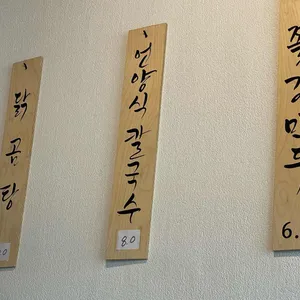 닭곰탕
언양식 칼국수
8.0
6.